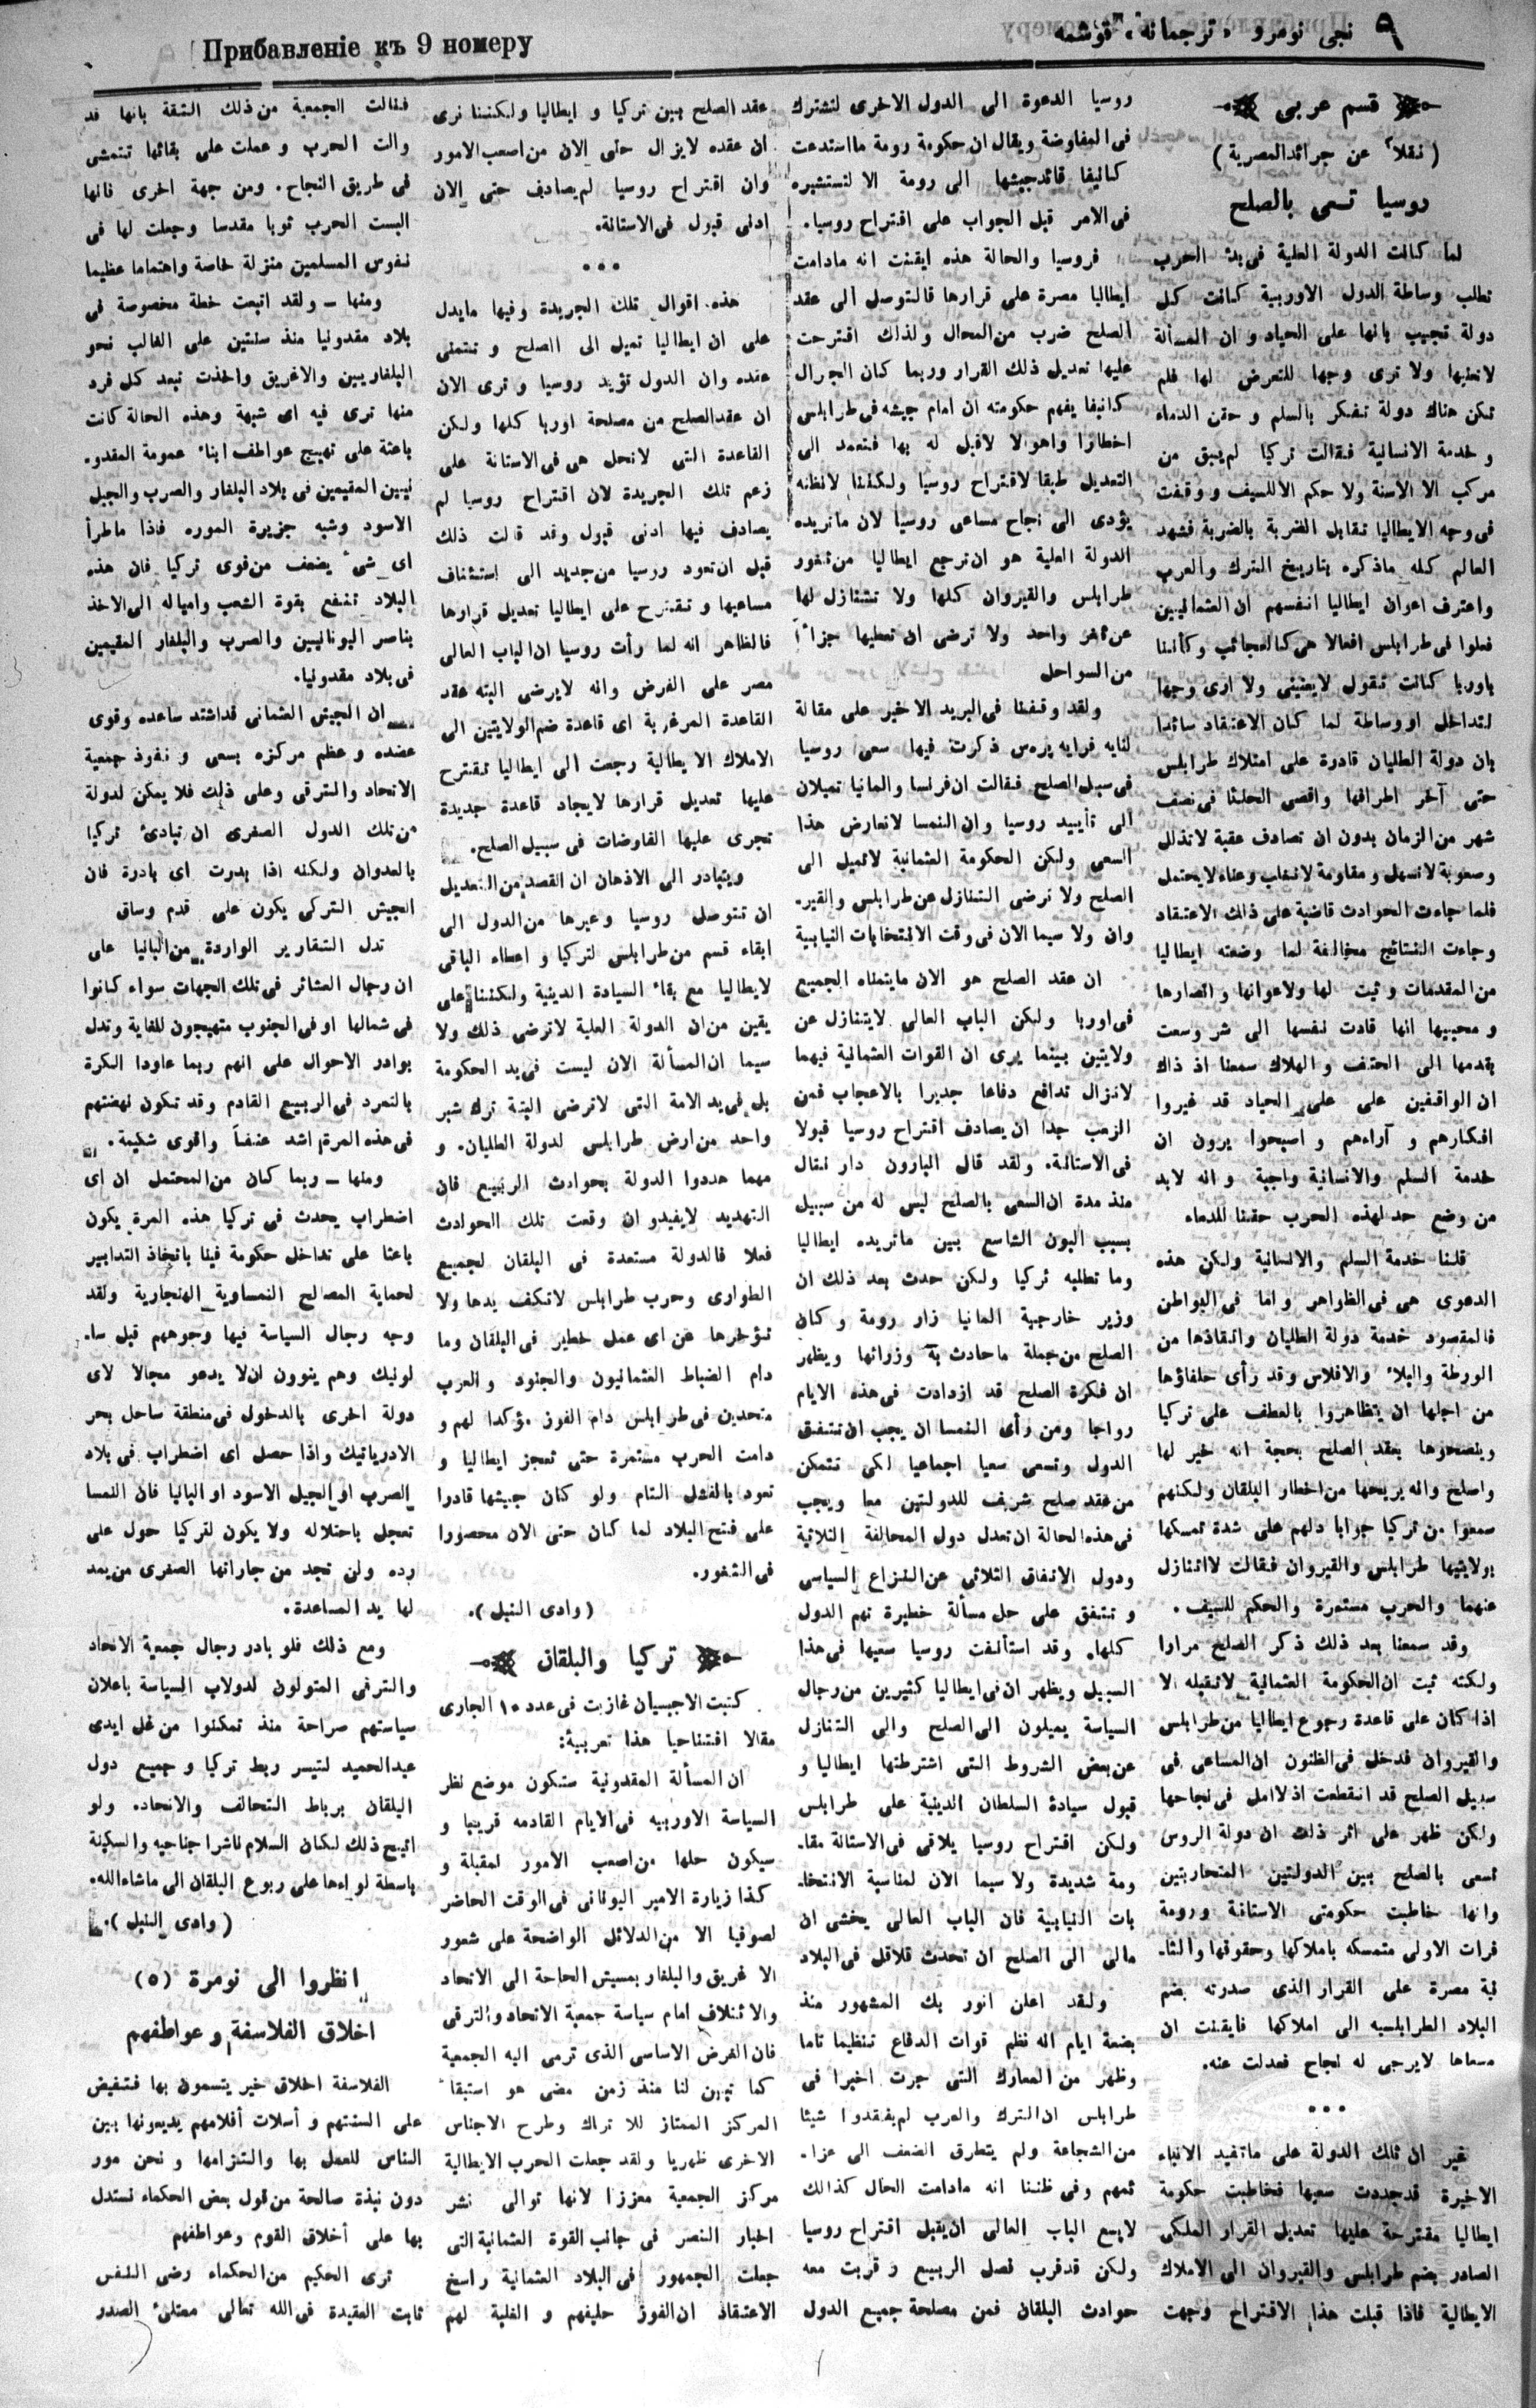 Прибавленіе къ 9 номеру
٩ نجى نومرو «ترجمانه» قوشمه
قسم عربى
(نقلاً عن جرائد المصرية)
روسيا تسعى بالصلح
لما كانت الدولة العلية فى بدء الحرب
تطلب وساطة الدول الاوربية كانت كل
دولة تجيب بانها على الحياد و ان المسألة
لا تعنيها ولا ترى وجها للتعرض لها فلم
تكن هناك دولة تفكر بالسلم و حقن الدماء
و خدمة الانسانية فقالت تركيا لم يبق من
مركب الا الاسنة ولا حكم الا للسيف و وقفت
فى وجه الايطاليا تقابل الضربة بالضربة فشهد
العالم كله ماذكره بتاريخ الترك والعرب
واعترف اعوان ايطاليا انفسهم ان العثمانيين
فعلوا فى طرابلس افعالا هى كالعجائب وكأننا
باوربا كانت تقول لا يعنينى ولا ارى وجها
لتداخل او وساطة لما كان الاعتقاد سائدا
بان دولة الطليان قادرة على امتلاك طرابلس
حتى آخر اطرافها واقصى الحلنا فى نصف
شهر من الزمان بدون ان تصادف عقبة لا تذلل
وصعوبة لا تسهل و مقاومة لا تغلب وعناء لا يحتمل
فلما جاءت الحوادث قاضية على ذالك الاعتقاد
وجاءت النتائج مخالفة لما وضعته ايطاليا
من المقدمات و ثبت لها ولاعوانها و انصارها
و محبيها انها قادت نفسها الى شر وسعت
بقدمها الى الحتف و الهلاك سمعنا اذ ذاك
ان الواقفين على على الحياد قد غيروا
افكارهم و آراءهم و اصبحوا يرون ان
خدمة السلم والانسانية واجبة و انه لابد
من وضع حد لهذه الحرب حقنا للدماء
قلنا خدمة السلم والانسانية ولكن هذه
الدعوى هى فى الظواهر و اما فى البواطن
فالمقصود خدمة دولة الطليان وانقاذها من
الورطة والبلاء والافلاس وقد رأى حلفاؤها
من اجلها ان يتظاهروا بالعطف على تركيا
وينصحوها بعقد الصلح بحجة انه خير لها
واصلح وانه يريحها من اخطار البلقان ولكنهم
سمعوا من تركيا جوابا دلهم على شدة تمسكها
بولايتيها طرابلس والقيروان فقالت لااتنازل
عنهما والحرب مستمرة والحكم للسيف.
وقد سمعنا بعد ذلك ذكر الصلح مرارا
ولكنه ثبت ان الحكومة العثمانية لا تقبله الا
اذا كان على قاعدة رجوع ايطاليا من طرابلس
والقيروان فدخل فى الظنون ان المساعى فى
سبيل الصلح قد انقطعت اذ لا امل فى نجاحها
ولكن ظهر على اثر ذلك ان دولة الروس
تسعى بالصلح بين الدولتين المتحاربتين
وانها خاطبت حكومتى الاستانة ورومة
فرات الاولى متمسكه باملاكها وحقوقها والثا-
نية مصرة على القرار الذى صدرته بضم
البلاد الطرابلسيه الى املاكها فايقنت ان
مسعاها لا يرجى له نجاح فعدلت عنه.
غير ان تلك الدولة على ماتفيد الانباء
الاخيرة قد جددت سعيها فخاطبت حكومة
ايطاليا مقترحة عليها تعديل القرار الملكى
الصادر بضم طرابلس والقيروان الى الاملاك
الايطالية فاذا قبلت هذا الاقتراح وجهت
روسيا الدعوة الى الدول الاخرى لتشترك
فى المفاوضة ويقال ان حكومة رومة ما استدعت
كانيفا قائد جيشها الى رومة الا لتستشيره
فى الامر قبل الجواب على اقتراح روسيا.
فروسيا والحالة هذه ايقنت انه مادامت
ايطاليا مصرة على قرارها فالتوصل الى عقد
الصلح ضرب من المحال ولذلك اقترحت
عليها تعديل ذلك القرار وربما كان الجرال
كانيفا يفهم حكومته ان امام جيشه فى طرابلس
اخطارا واهوالا لا قبل له بها فتعمد الى
التعديل طبقا لاقتراح روسيا ولكننا لانظنه
يؤدى الى نجاح مساعى روسيا لان ماتريده
الدولة العلية هو ان ترجع ايطاليا من ثغور
طرابلس والقيروان كلها ولا تتنازل لها
عن ثغر واحد ولا ترضى ان تعطيها جزاً
من السواحل
ولقد وقفنا فى البريد الاخير على مقالة
لنايه فرايه پرس ذكرت فيها سعى روسيا
فى سبيل الصلح فقالت ان فرنسا والمانيا تميلان
الى تأييد روسيا وان النمسا لا تعارض هذا
السعى ولكن الحكومة العثمانية لا تميل الى
الصلح ولا ترضى التنازل عن طرابلس والقير-
وان ولا سيما الان فى وقت الانتخابات النيابية
ان عقد الصلح هو الان مايتمناه الجميع
فى اوربا ولكن الباب العالى لا يتنازل عن
ولايتين بينما يرى ان القوات العثمانية فيهما
لا تزال تدافع دفاعا جديرا بالاعجاب فمن
الزعب جدا ان يصادف اقتراح روسيا قبولا
فى الاستانة. ولقد قال البارون دار نتال
منذ مدة ان السعى بالصلح ليس له من سبيل
بسبب البون الشاسع بين ماتريده ايطاليا
وما تطلبه تركيا ولكن حدث بعد ذلك ان
وزير خارجية المانيا زار رومة و كان
الصلح من جملة ماحادث به وزرائها ويظهر
ان فكرة الصلح قد ازدادت فى هذه الايام
رواجا ومن رأى النمسا ان يجب ان تتفق
الدول وتسعى سعيا اجماعيا لكى تتمكن
من عقد صلح شريف للدولتين معا ويجب
فى هذه الحالة ان تعدل دول المحالفة الثلاثية
ودول الاتفاق الثلاثى عن النزاع السياسى
و تتفق على حل مسألة خطيرة تهم الدول
كلها. وقد استأنفت روسيا سعيها فى هذا
السبيل ويظهر ان فى ايطاليا كثيرين من رجال
السياسة يميلون الى الصلح والى التنازل
عن بعض الشروط التى اشترطتها ايطاليا و
قبول سيادة السلطان الدينية على طرابلس
ولكن اقتراح روسيا يلاقى فى الاستانة مقا-
ومة شديدة ولا سيما الان لمناسبة الانتخا-
بات النيابية فان الباب العالى يخشى ان
مالى الى الصلح ان تحدث قلاقل فى البلاد
ولقد اعلن انور بك المشهور منذ
بضعة ايام انه نظم قوات الدفاع تنظيما تاما
وظهر من المعارك التى جرت اخيرا فى
طرابلس ان الترك والعرب لم يفقدوا شيئا
من الشجاعة ولم يتطرق الضعف الى عزا-
ئمهم وفى ظننا انه مادامت الحال كذالك
لا يسع الباب العالى ان يقبل اقتراح روسيا
ولكن قد قرب فصل الربيع و قربت معه
حوادث البلقان فمن مصلحة جميع الدول
عقد الصلح بين تركيا و ايطاليا ولكننا نرى
ان عقده لا يزال حتى الان من اصعب الامور
وان اقتراح روسيا لم يصادف حتى الان
ادنى قبول فى الاستانة.
هذه اقوال تلك الجريدة وفيها مايدل
على ان ايطاليا تميل الى الصلح و تتمنى
عنده وان الدول تؤيد روسيا و ترى الان
ان عقد الصلح من مصلحة اوربا كلها ولكن
القاعدة التى لا تحل هى فى الاستانة على
زعم تلك الجريدة لان اقتراح روسيا لم
يصادف فيها ادنى قبول وقد قالت ذلك
قبل ان تعود روسيا من جديد الى استئناف
مساعيها و تقترح على ايطاليا تعديل قرارها
فالظاهر انه لما رأت روسيا ان الباب العالى
مصر على الفرض وانه لا يرضى البته عقد
القاعدة المرغوبة اى قاعدة ضم الولايتين الى
الاملاك الايطالية رجعت الى ايطاليا تقترح
عليها تعديل قرارها لايجاد قاعدة جديدة
تجرى عليها الفاوضات فى سبيل الصلح.
ويتبادر الى الاذهان ان القصد من التعديل
ان تتوصل روسيا و غيرها من الدول الى
ابقاء قسم من طرابلس لتركيا و اعطاء الباقى
لايطاليا مع بقاء السيادة الدينية ولكننا على
يقين من ان الدولة العلية لا ترضى ذلك ولا
سيما ان المسألة الان ليست فى يد الحكومة
بل فى يد الامة التى لا ترضى البتة ترك شبر
واحد من ارض طرابلس لدولة الطليان. و
مهما هددوا الدولة بحوادث الربيع فان
التهديد لا يفيد و ان وقعت تلك الحوادث
فعلا فالدولة مستعدة فى البلقان لجميع
الطوارى وحرب طرابلس لا تكف يدها ولا
تؤخرها عن اى عمل خطير فى البلقان وما
دام الضباط العثمانيون والجنود والعرب
متحدين فى طرابلس دام الفوز مؤكدا لهم و
دامت الحرب مستمرة حتى تعجز ايطاليا و
تعود بالفشل التام ولو كان جيشها قادرا
على فتح البلاد لما كان حتى الان محصورا
فى الثغور.
(وادى النيل).
تركيا والبلقان
كتبت الاجبسيان غازيت فى عدد ١٠ الجارى
مقالا افتتاحيا هذا تعريبه:
ان المسألة المقدونية ستكون موضع نظر
السياسة الاوربيه فى الايام القادمه قريبا و
سيكون حلها من اصعب الامور لمقبلة و
كذا زيارة الامير اليونانى فى الوقت الحاضر
لصوفيا الا من الدلائل الواضحة على شعور
الاغريق والبلغار بمسيس الحاجة الى الاتحاد
والائتلاف امام سياسة جمعية الاتحاد والترقى
فان الغرض الاساسى الذى ترمى اليه الجمعية
كما تبين لنا منذ زمن مضى هو استبقاء
المركز الممتاز للاتراك وطرح الاجناس
الاخرى ظهريا ولقد جعلت الحرب الايطالية
مركز الجمعية معززا لانها توالى نشر
اخبار النصر فى جانب القوة العثمانية التى
جعلت الجمهور فى البلاد العثمانية راسخ
الاعتقاد ان الفوز حليفهم و الغلبة لهم
فنالت الجمعية من ذلك الثقة بانها قد
والت الحرب و عملت على بقائها تتمشى
فى طريق النجاح. ومن جهة اخرى فانها
البست الحرب ثوبا مقدسا وجعلت لها فى
نفوس المسلمين منزلة خاصة واهتماما عظيما
ومنها — ولقد اتبعت خطة مخصوصة فى
بلاد مقدونيا منذ سنتين على الغالب نحو
البلغاريين والاغريق واخذت تبعد كل فرد
منها ترى فيه اى شبهة وهذه الحالة كانت
باعثة على تهييج عواطف ابناء عمومة المقدو-
نيين المقيمين فى بلاد البلغار والصرب والجبل
الاسود وشبه جزيرة الموره فاذا ماطرأ
اى شئ يضعف من قوى تركيا فان هذه
البلاد تنتفع بقوة الشعب وامياله الى الاخذ
بناصر اليونانيين والصرب والبلغار المقيمين
فى بلاد مقدونيا.
ان الجيش العثمانى قد اشتد ساعده وقوى
عضده و عظم مركزه بسعى و نفوذ جمعية
الاتحاد والترقى وعلى ذلك فلا يمكن لدولة
من تلك الدول الصغرى ان تبادئ تركيا
بالعدوان ولكنه اذا بدرت اى بادرة فان
الجيش التركى يكون على قدم وساق
تدل التقارير الواردة من البانيا على
ان رجال العشائر فى تلك الجهات سواء كانوا
فى شمالها او فى الجنوب متهيجون للغاية وتدل
بوادر الاحوال على انهم ربما عاودا الكرة
بالتمرد فى الربيع القادم وقد تكون نهضتهم
فى هذه المرة اشد عنفاً واقوى شكيمة.
ومنها — ربما كان من المحتمل ان اى
اضطراب يحدث فى تركيا هذه المرة يكون
باعثا على تداخل حكومة فينا باتخاذ التدابير
لحماية المصالح النمساوية الهنجارية ولقد
وجه رجال السياسة فيها وجوههم قبل سا-
لونيك وهم ينوون ان لا يدعو مجالا لاى
دولة اخرى بالدخول فى منطقة ساحل بحر
الادرياتيك واذا حصل اى اضطراب فى بلاد
الصرب او الجبل الاسود او البانيا فان النمسا
تعجل باحتلاله ولا يكون لتركيا حول على
رده ولن تجد من جاراتها الصغرى من يمد
لها يد المساعدة.
ومع ذلك فلو بادر رجال جمعية الاتحاد
والترقى المتولون لدولاب السياسة باعلان
سياستهم صراحة منذ تمكنوا من غل ايدى
عبدالحميد لتيسر ربط تركيا و جميع دول
البلقان برباط التحالف والاتحاد. ولو
اتيح ذلك لكان السلام ناشرا جناحيه والسكينة
باسطة لواءها على ربوع البلقان الى ماشاءالله.
(وادى النيل).
انظروا الى نومرة (٥)
اخلاق الفلاسفة و عواطفهم
الفلاسفة اخلاق خير يتسمون بها فتفيض
على السنتهم و أسلات أقلامهم يديعونها بين
الناس للعمل بها والتزامها و نحن مور
دون نبذة صالحة من قول بعض الحكماء نستدل
بها على أخلاق القوم وعواطفهم
ترى الحكيم من الحكماء رضى النفس
ثابت العقيدة فى الله تعالى ممتلئ الصدر